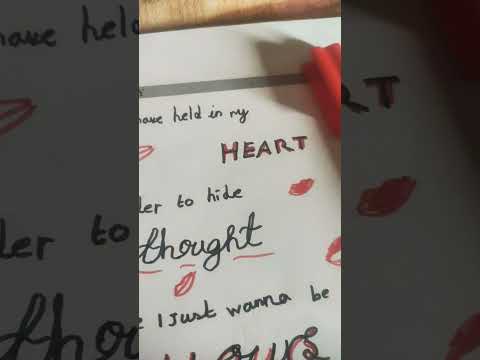 have held in my
HEART
to hide
thought
I Just wanna be
yours